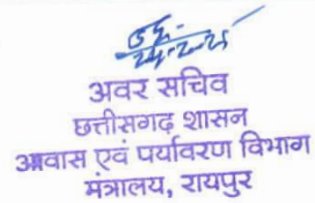 24-2-25
अवर सचिव
छत्तीसगढ़ शासन
आवास एवं पर्यावरण विभाग
मंत्रालय, रायपुर